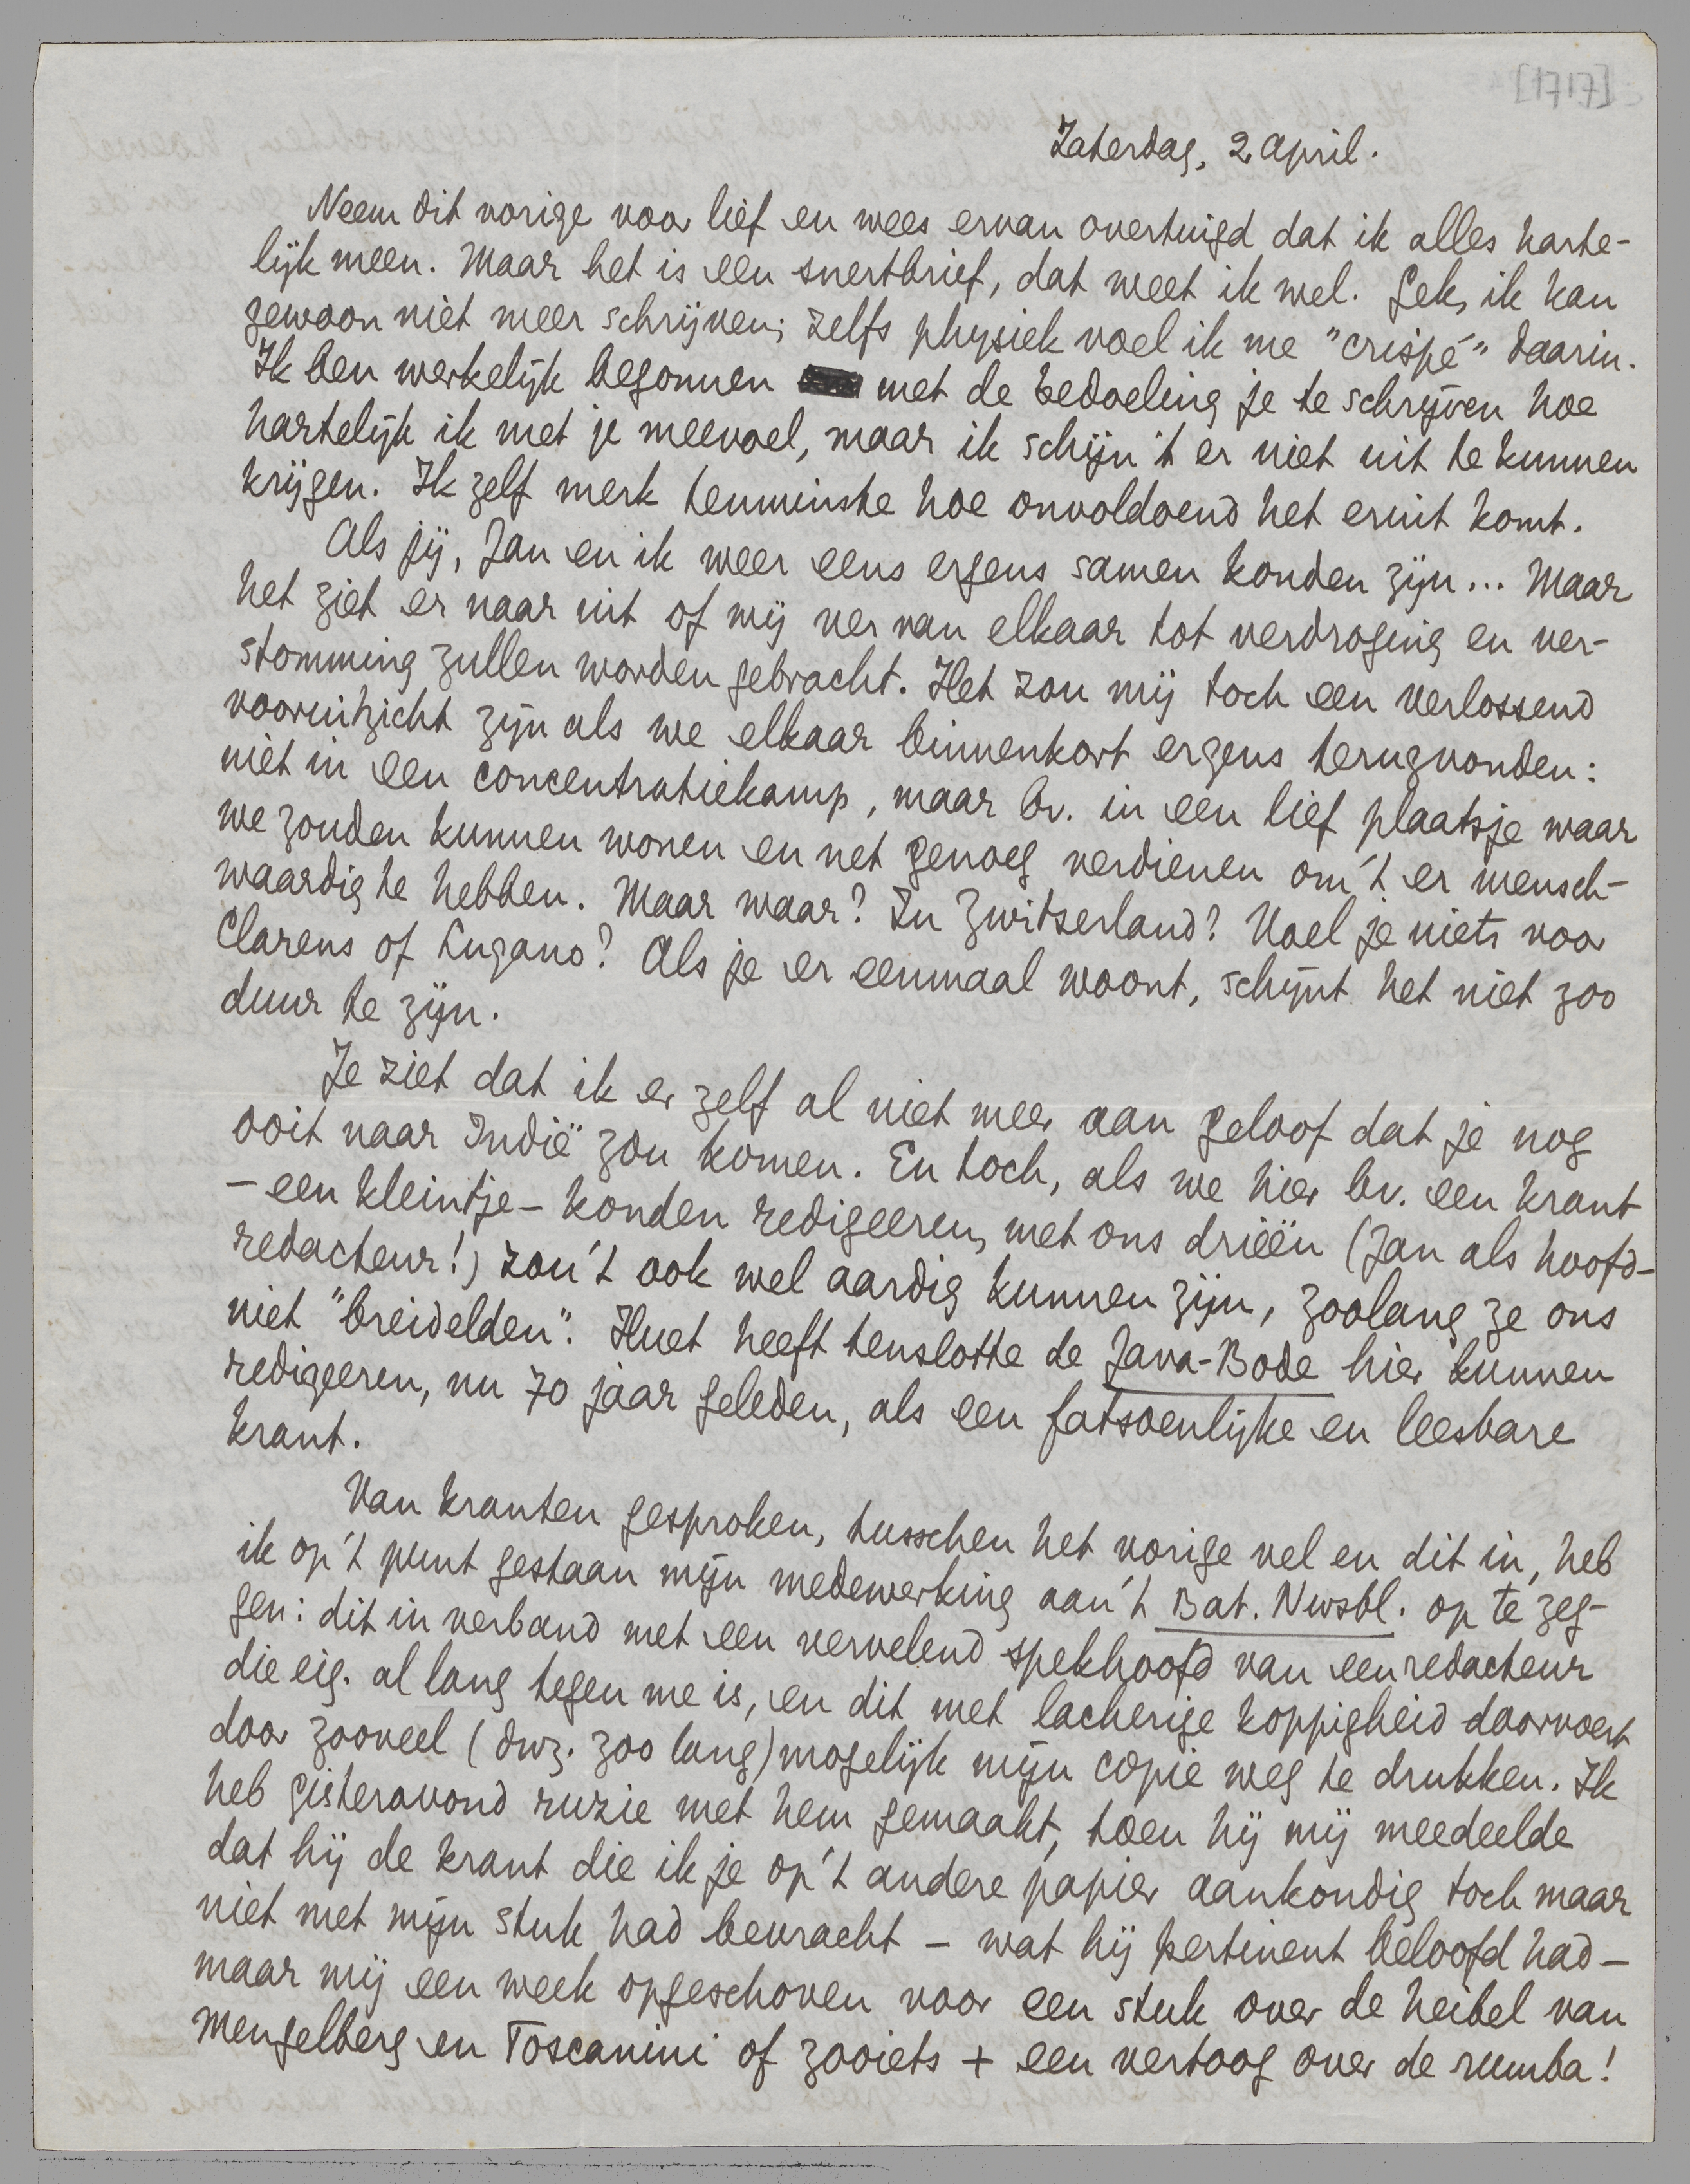 [1717]
Zaterdag, 2 April.
Neem dit vorige voor lief en wees ervan overtuigd dat ik alles harte-
lijk meen. Maar het is een snertbrief, dat weet ik wel. Gek, ik kan
gewoon niet meer schrijven; zelfs physiek voel ik me "crispé" daarin.
Ik ben werkelijk begonnen met de bedoeling je te schrijven hoe
hartelijk ik met je meevoel, maar ik schijn 't er niet uit te kunnen
krijgen. Ik zelf merk tenminste hoe onvoldoend het eruit komt.
Als jij, Jan en ik weer eens ergens samen konden zijn... Maar
het ziet er naar uit of wij ver van elkaar tot verdroging en ver-
stomming zullen worden gebracht. Het zou mij toch een verlossend
vooruitzicht zijn als we elkaar binnenkort ergens terugvonden:
niet in een concentratiekamp, maar bv. in een lief plaatsje waar
we zouden kunnen wonen en net genoeg verdienen om 't er mensch-
waardig te hebben. Maar waar? In Zwitserland? Voel je niets voor
Clarens of Lugano? Als je er eenmaal woont, schijnt het niet zoo
duur te zijn.
Je ziet dat ik er zelf al niet meer aan geloof dat je nog
ooit naar Indië zou komen. En toch, als we hier bv. een krant
– een kleintje – konden redigeeren, met ons drieën (Jan als hoofd-
redacteur!) zou 't ook wel aardig kunnen zijn, zoolang ze ons
niet "breidelden". Huet heeft tenslotte de Java-Bode hier kunnen
redigeeren, nu 70 jaar geleden, als een fatsoenlijke en leesbare
krant.
Van kranten gesproken, tusschen het vorige vel en dit in, heb
ik op 't punt gestaan mijn medewerking aan 't Bat. Nwsbl. op te zeg-
gen: dit in verband met een vervelend spekhoofd van een redacteur
die eig. al lang tegen me is, en dit met lacherige koppigheid doorvoert
door zooveel (dwz. zoo lang) mogelijk mijn copie weg te drukken. Ik
heb gisteravond ruzie met hem gemaakt, toen hij mij meedeelde
dat hij de krant die ik je op 't andere papier aankondig toch maar
niet met mijn stuk had bevracht – wat hij pertinent beloofd had –
maar mij een week opgeschoven voor een stuk over de heibel van
Mengelberg en Toscanini of zooiets + een vertoog over de rumba!